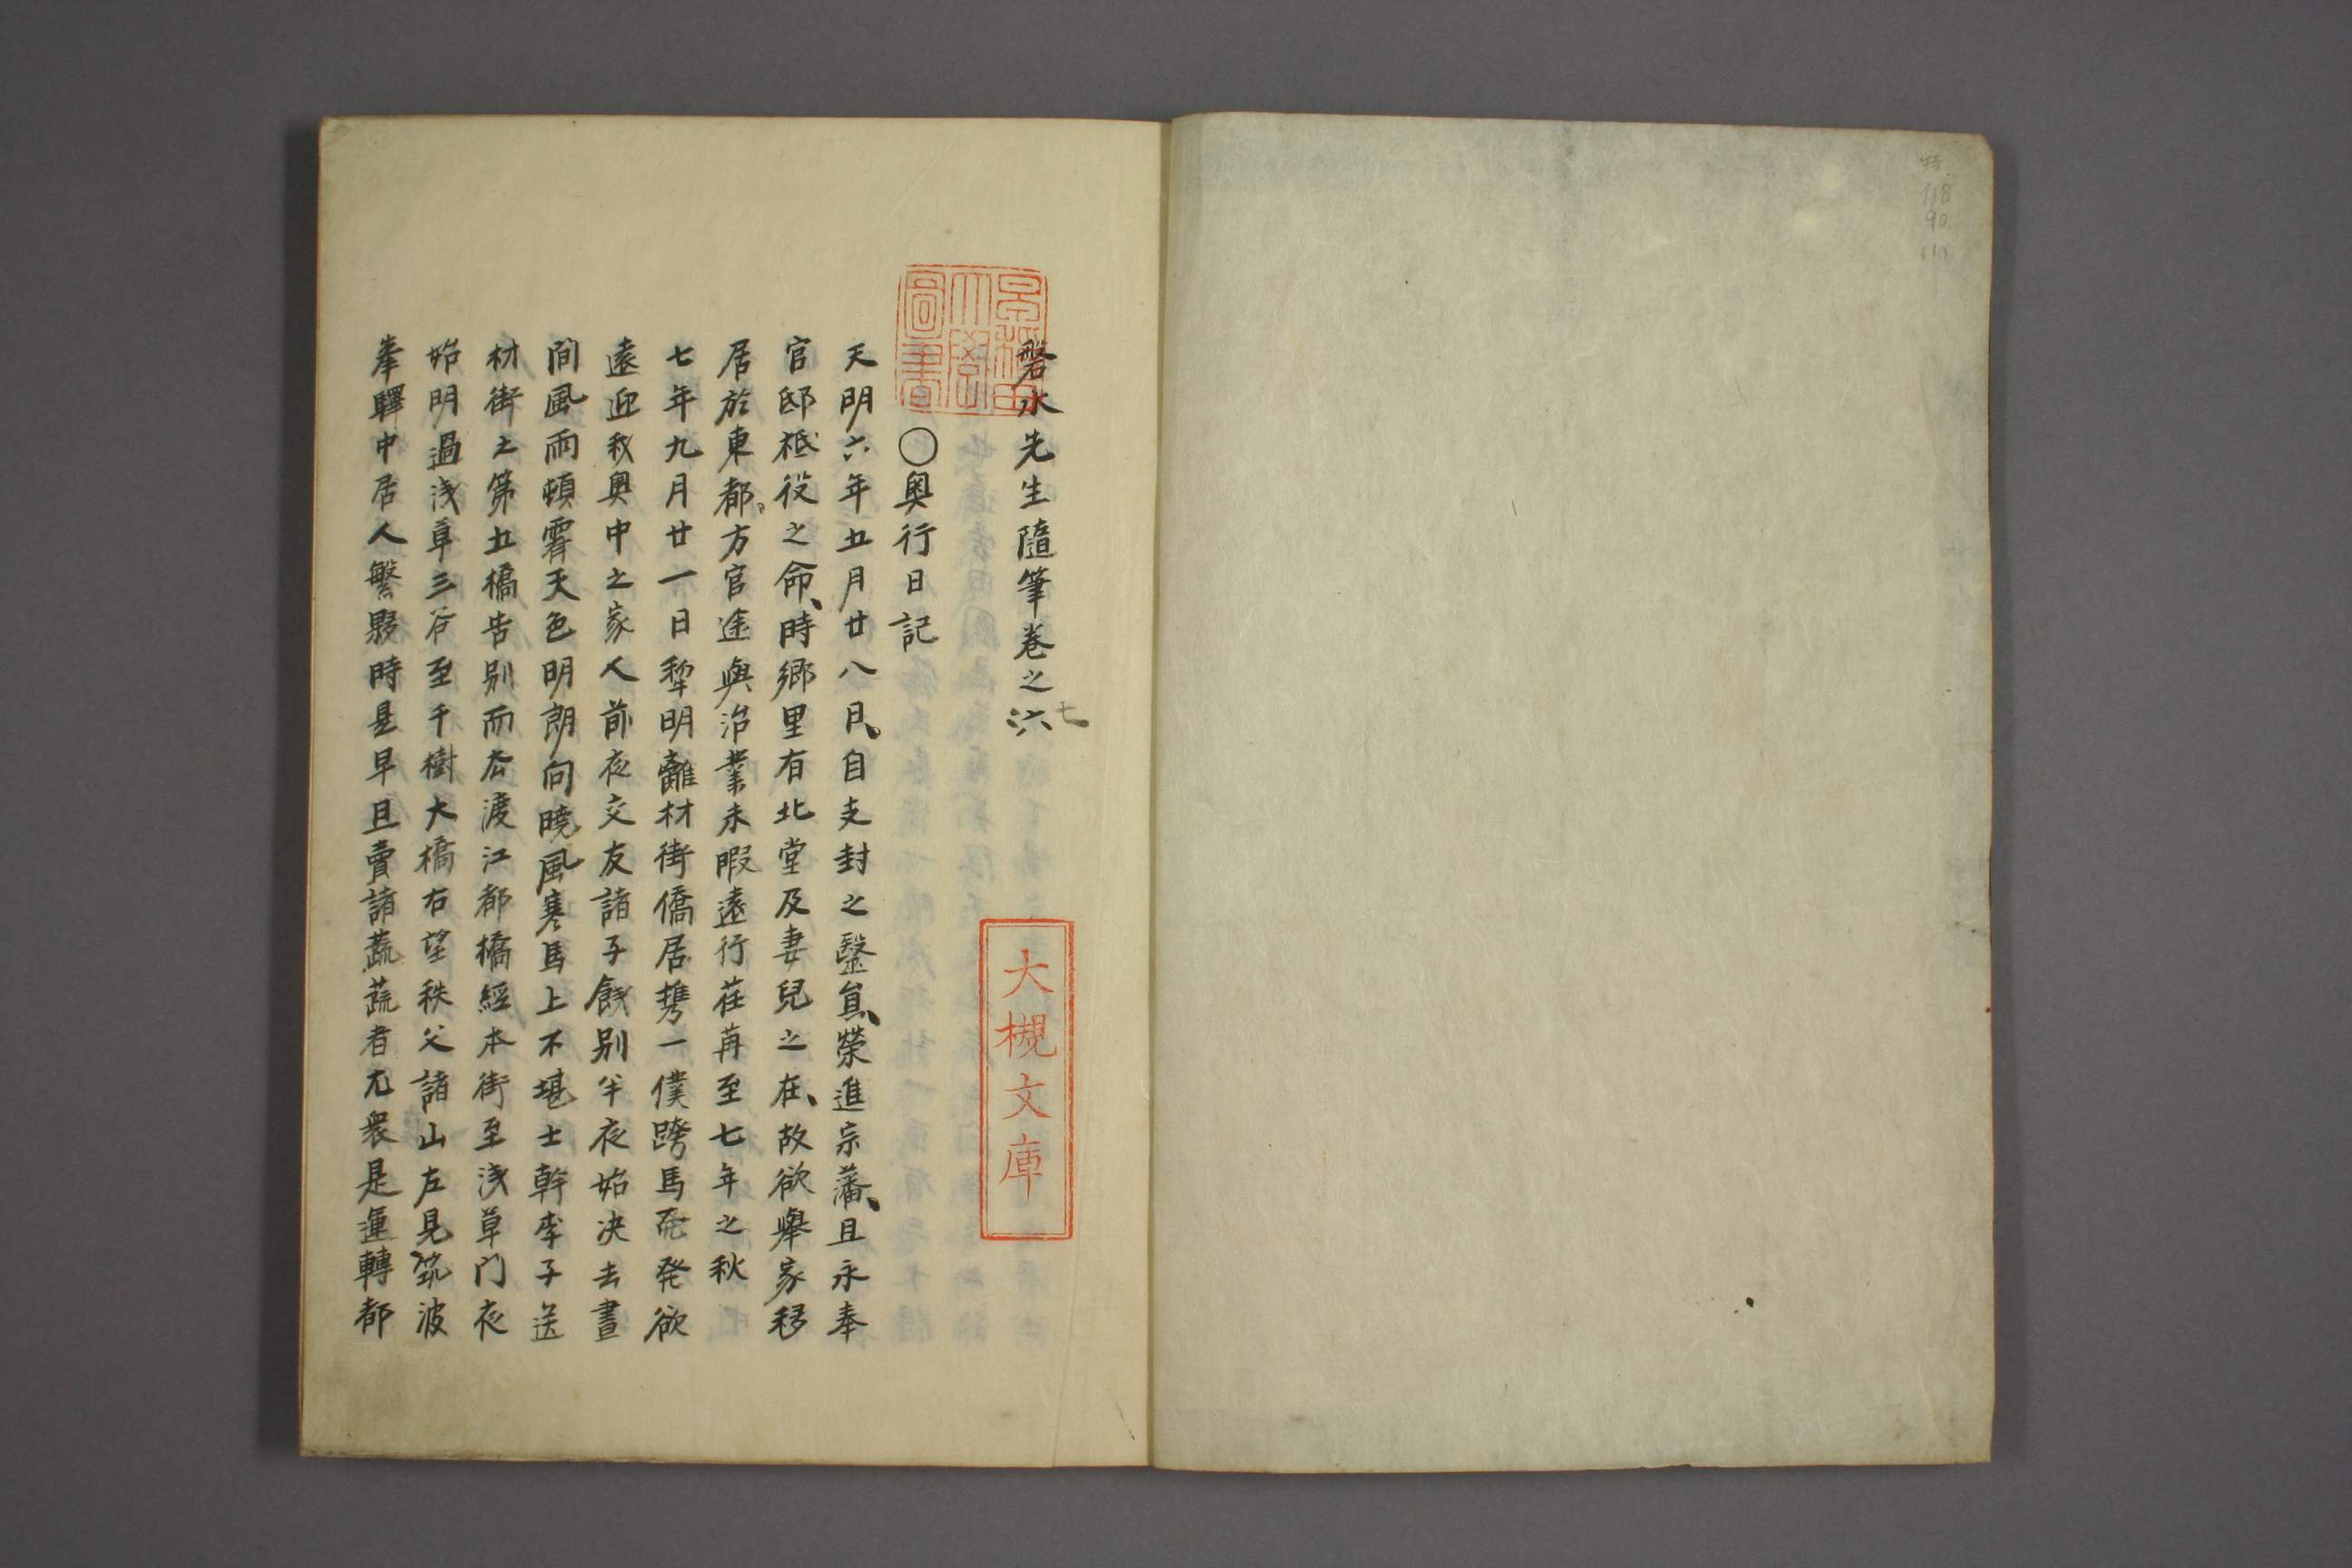 特
118
90
(1)
早稲田
大學
圖書
磐水先生隨筆卷之六
七
〇奥行日記
天明六年五月廿八日、自支封之醫員、榮進宗藩、且永奉
官邸祗役之命、時鄉里有北堂及妻兒之在、故欲舉家移
居於東都。方官途與治業未暇遠行荏苒至七年之秋
七年九月廿一日犁明離材街僑居携一僕跨馬而発欲
遠迎我奥中之家人前夜交友諸子餞别半夜始决去晝
間風雨頓霽天色明朗向曉風寒馬上不堪士幹李子送
材街之第五橋告别而去渡江都橋經本街至浅草门夜
始明過浅草三谷至千樹大橋右望秩父諸山左見筑波
峯驛中居人繁夥時是早且賣諸蔬蔬者尤衆是運轉都
大槻文庫